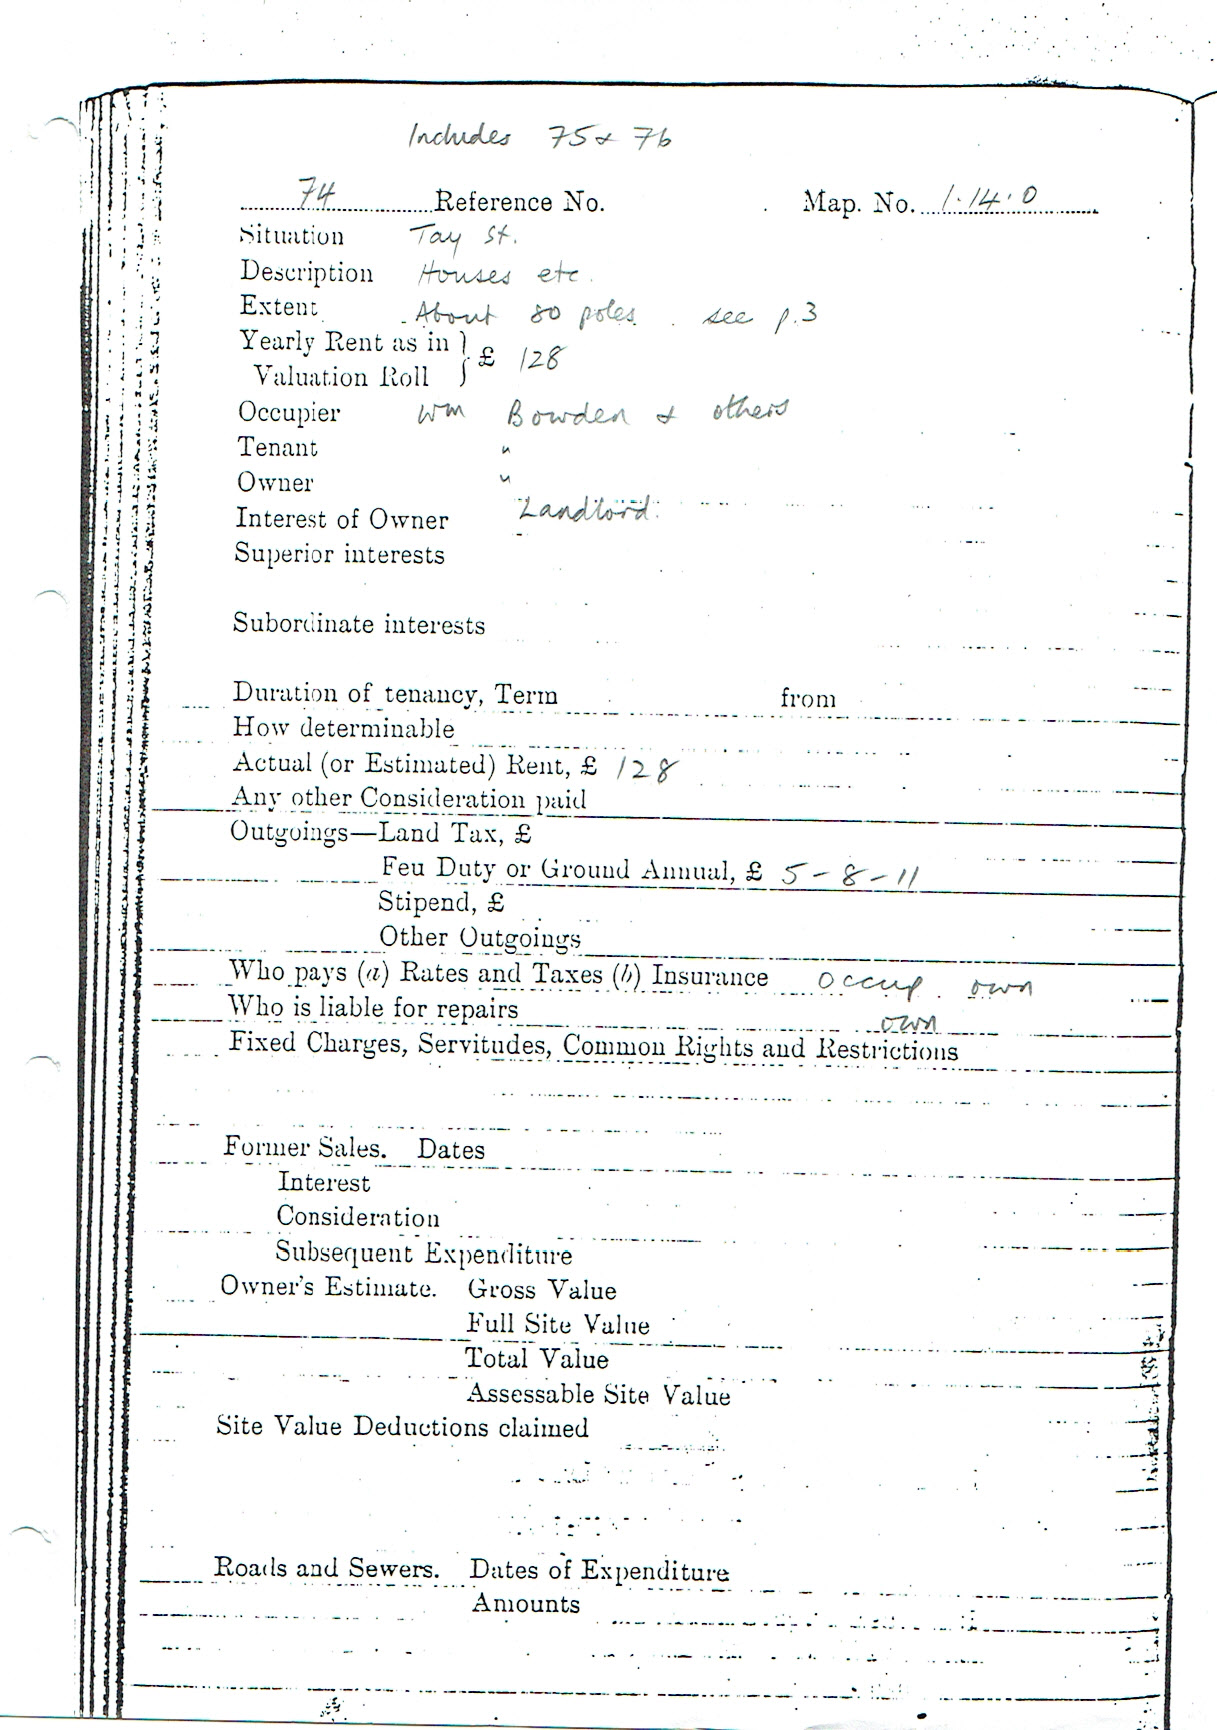 Includes 75 & 76
74 Reference No. Map. No. 1.14.0
Situation Tay St.
Description Houses etc.
Extent About 80 poles. see p.3
Yearly Rent as in
Valuation Roll } £ 128
Occupier Wm Bowden & others
Tenant "
Owner "
Interest of Owner Landlord.
Superior interests
Subordinate interests
Duration of tenancy, Term from
How determinable
Actual (or Estimated) Rent, £ 128
Any other Consideration paid
Outgoings—Land Tax, £
Feu Duty or Ground Annual, £ 5-8-11
Stipend, £
Other Outgoings
Who pays (a) Rates and Taxes (b) Insurance occup. own
Who is liable for repairs own
Fixed Charges, Servitudes, Common Rights and Restrictions
Former Sales. Dates
Interest
Consideration
Subsequent Expenditure
Owner's Estimate. Gross Value
Full Site Value
Total Value
Assessable Site Value
Site Value Deductions claimed
Roads and Sewers. Dates of Expenditure
Amounts